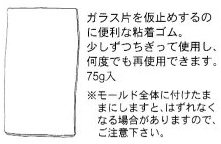 ガラス片を仮止めするの
に便利な粘着ゴム。
少しずつちぎって使用し、
何度でも再使用できます。
75g入
※モールド全体に付けたま
まにしますと、はずれなく
なる場合がありますので、
ご注意下さい。